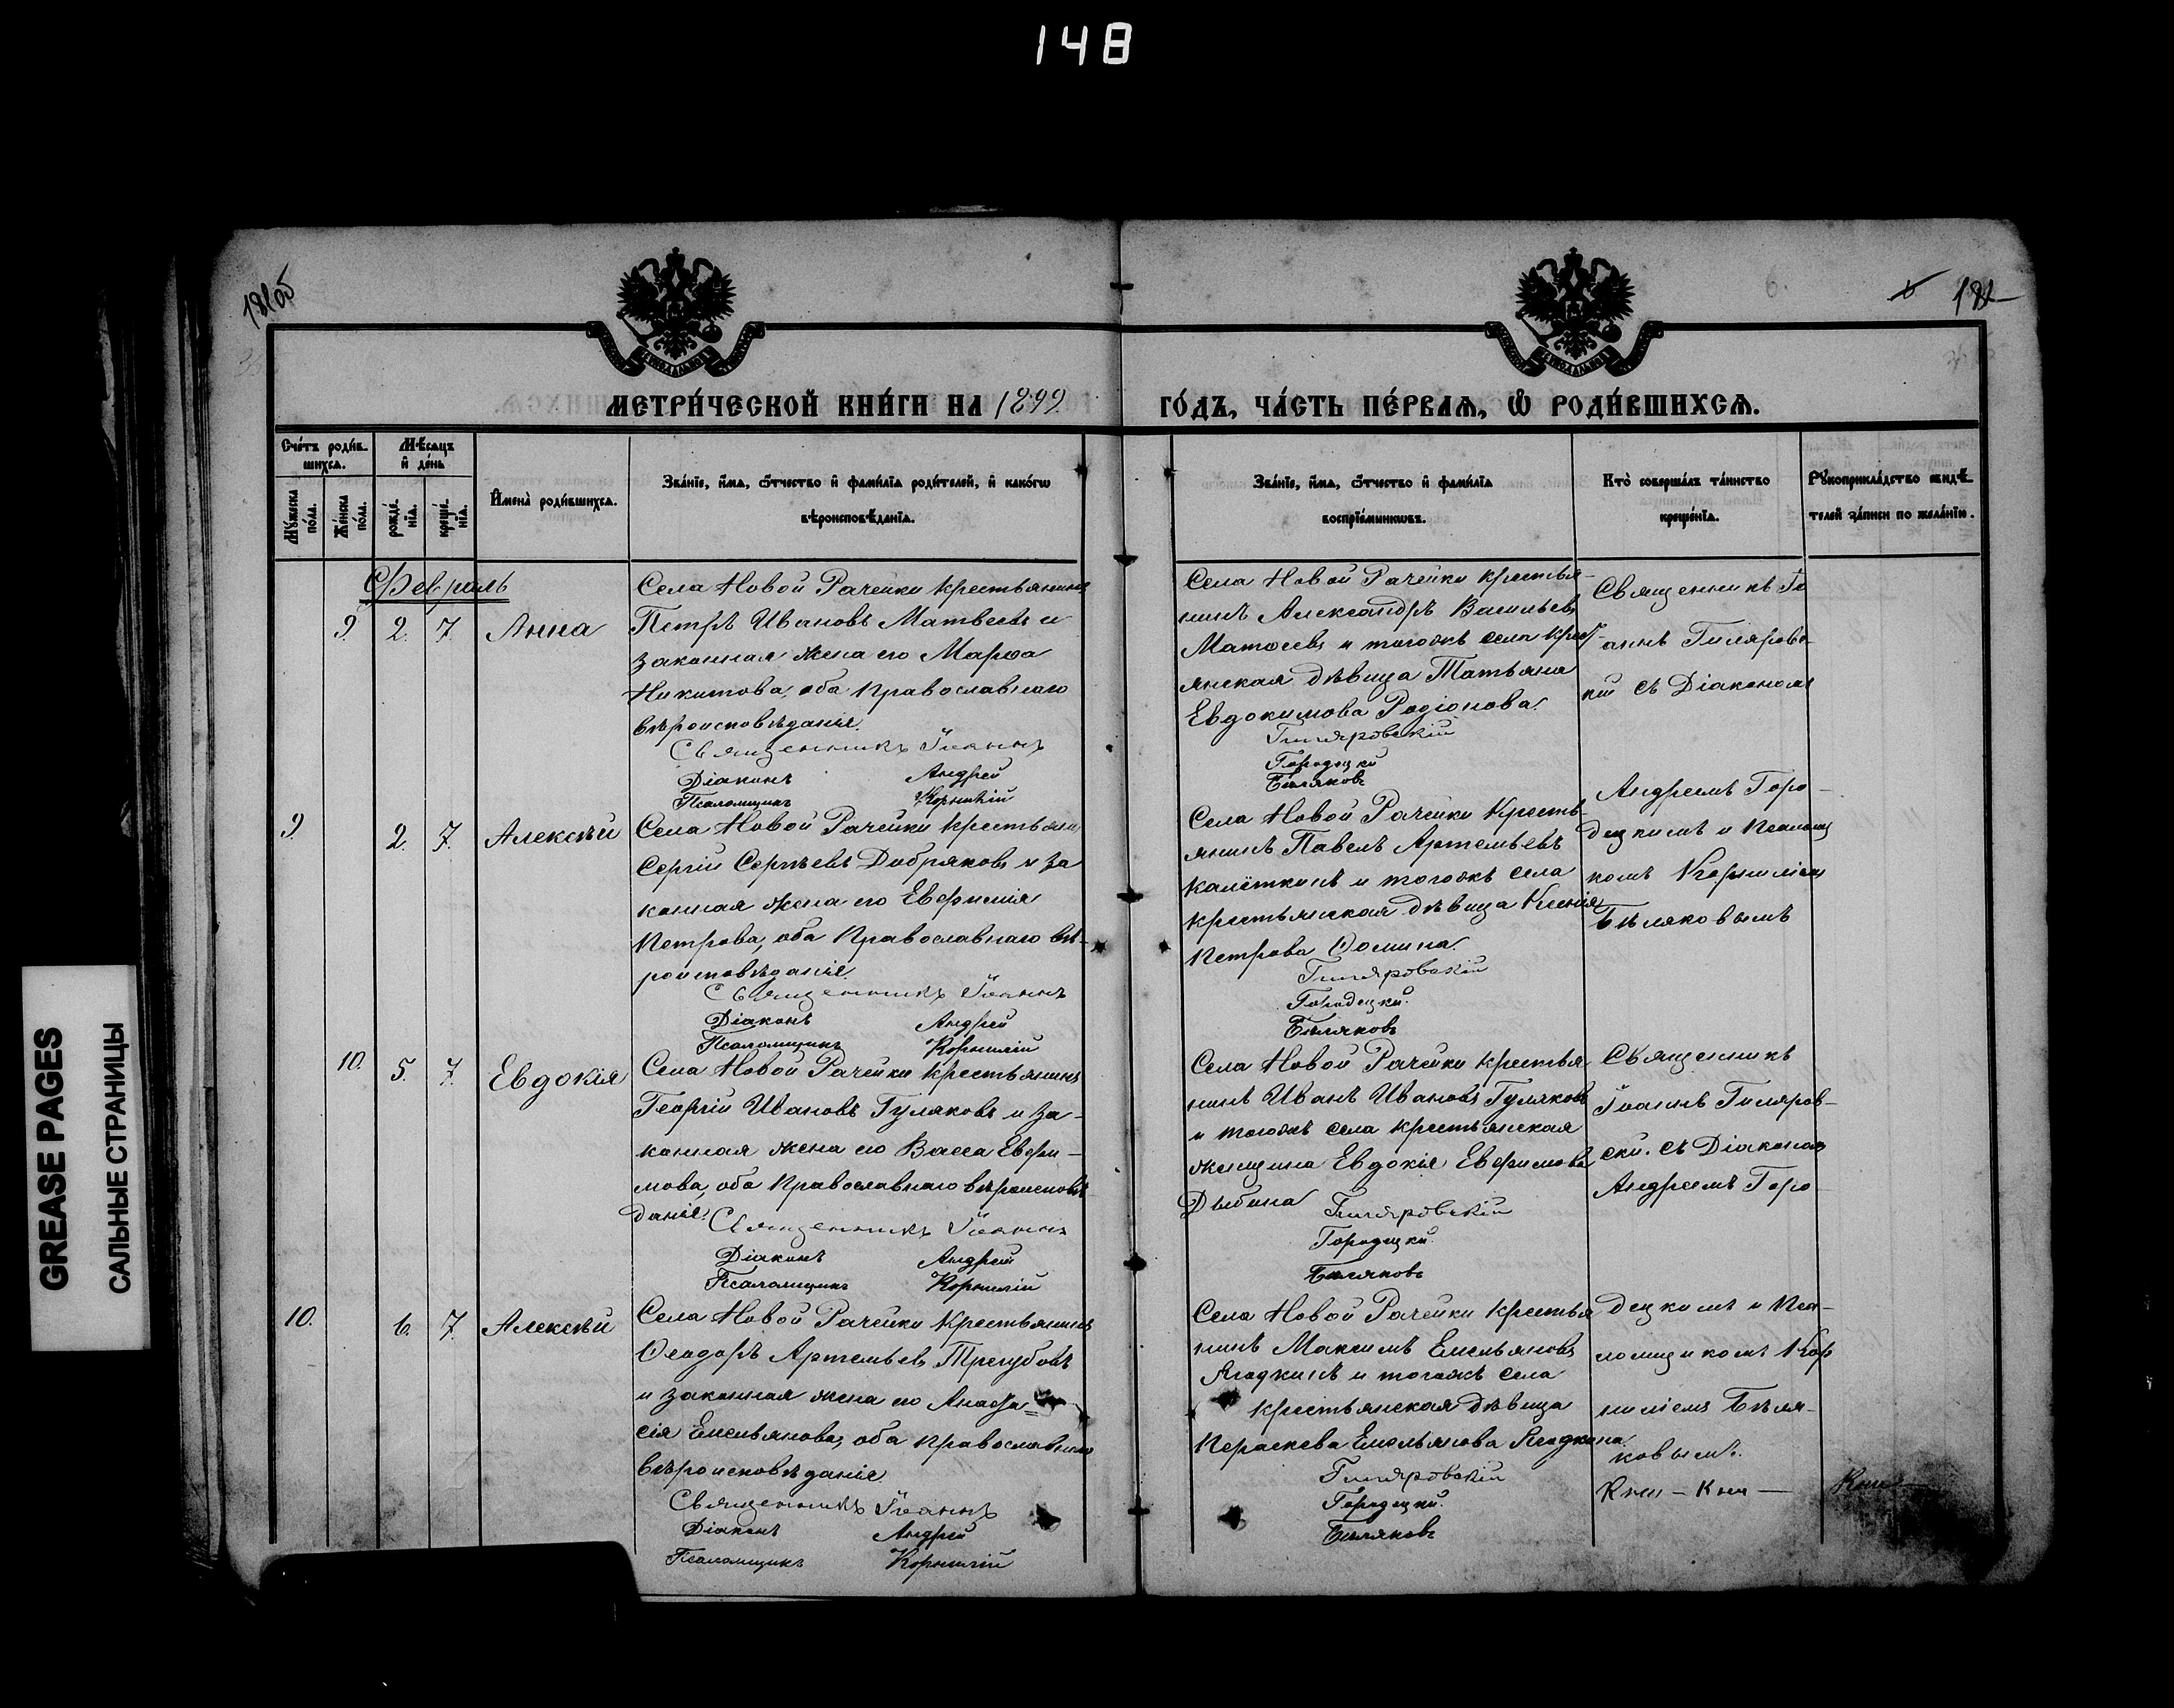 148
МЕТРИ́ЧЕСКОЙ КНИ́ГИ НА 1899
ГО́ДЪ, ЧА́СТЬ ПЕ́РВАѦ, Ѽ РОДИ́ВШИХСѦ.
Счётъ роди́в-
шихсѧ.
Мѣ́сѧцъ
и҆ де́нь
Мꙋ́жеска
по́ла.
Же́нска
по́ла.
рожде́-
нїѧ.
креще́-
нїѧ.
И҆мена̀ роди́вшихсѧ.
Зва́нїе, и҆́мѧ, ѻ҆́тчество и҆ фами́лїѧ роди́телей, и҆ како́гѡ
вѣроисповѣ́данїѧ.
Зва́нїе, и҆́мѧ, ѻ҆́тчество и҆ фами́лїѧ
воспрїе́мникѡвъ.
Кто̀ соверша́лъ та́инство
креще́нїѧ.
Рꙋкоприкла́дство свидѣ́-
телей за́писи по жела́нїю.
Февраль
9. 2. 7. Анна
Села Новой Рачейки крестьянинъ
Петръ Ивановъ Матвеевъ и
законная жена его Марѳа
Никитова, оба Православнаго
вѣроисповѣданіе.
Священникъ Іоаннъ
Діаконъ Андрей
Псаломщикъ Корнилій
Села Новой Рачейки крестья-
нинъ Александръ Васильевъ
Матѳеевъ и тогожъ села крест-
янская дѣвица Татьяна
Евдокимова Родіонова.
Гиляровскій
Городецкій
Бѣляковъ
Священникъ Іо
аннъ Гиляровс-
кій съ Діакономъ
Андреемъ Горо-
децкимъ и Псаломщ
комъ Корниліемъ
Бѣляковымъ
9. 2. 7. Алексѣй
Села Новой Рачейки крестьянин
Сергій Сергѣевъ Добряковъ и за
конная жена его Евфимія
Петрова, оба Православнаго вѣ-
роисповѣданіе.
Священникъ Іоаннъ
Діаконъ Андрей
Псаломщикъ Корнилій
Села Новой Рачейки Кресть-
янинъ Павелъ Артемьевъ
Калёткинъ и тогожъ села
крестьянская дѣвица Ксенія
Петрова Ѳомина.
Гиляровскій
Городецкій.
Бѣляковъ
10. 5. 7. Евдокія
Села Новой Рачейки крестьянинъ
Георгій Ивановъ Гуляковъ и за-
конная жена его Васса Евфи-
мова, оба Православнаго вѣроисповѣ-
даніе.
Священникъ Іоаннъ
Діаконъ Андрей
Псаломщикъ Корнилій
Села Новой Рачейки крестья
нинъ Иванъ Ивановъ Гуляковъ
и тогожъ села крестьянская
женщина Евдокіе Евфимова
Дыбина
Гиляровскій
Городецкій
Бѣляковъ
Священникъ
Іоаннъ Гиляров-
скій съ Діакономъ
Андреемъ Горо-
децкимъ и Пса-
ломщикомъ Кор
ниліемъ Бѣля-
ковымъ.
10. 6. 7. Алексѣй
Села Новой Рачейки Крестьянинъ
Ѳеодоръ Артемьевъ Трегубовъ
и законная жена его Анаста=
сія Емельянова, оба православнаго
вѣроисповѣданіе
Священникъ Іоаннъ
Діаконъ Андрей
Псаломщикъ Корнилій
Села Новой Рачейки крестья
нинъ Максимъ Емельяновъ
Ягодкинъ и тогожъ села
крестьянская дѣвица
Параскева Емельянова Ягодкина.
Гиляровскій
Городецкій.
Бѣляковъ
GREASE PAGES
САЛЬНЫЕ СТРАНИЦЫ